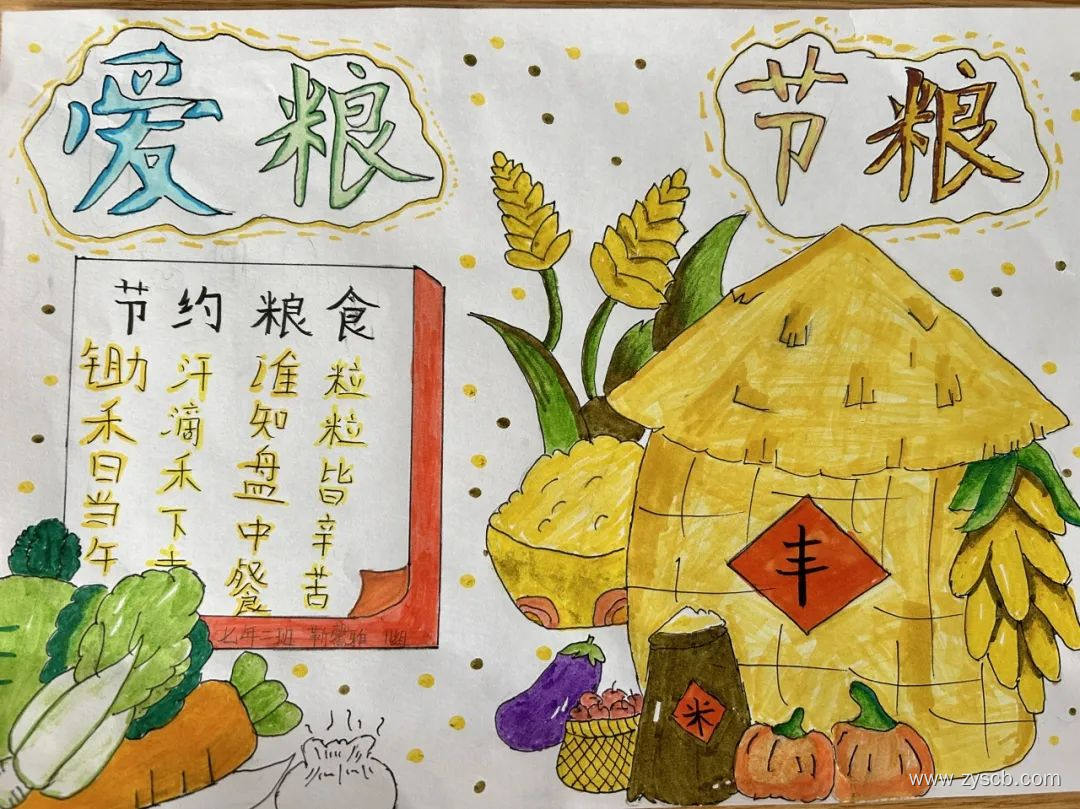 爱粮
节粮
节约粮食
锄禾日当午
汗滴禾下
谁知盘中餐
粒粒皆辛苦
二班
丰
米
www.zyscb.com